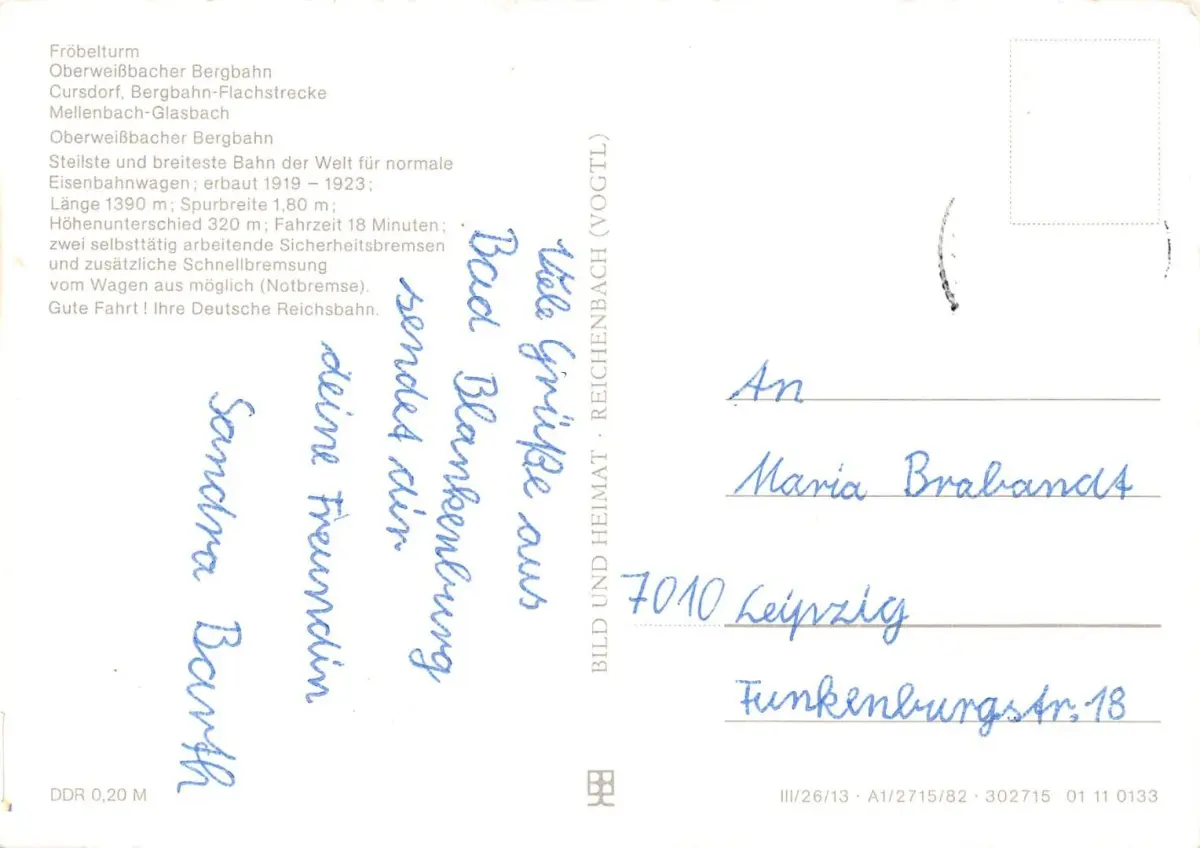 Fröbelturm
Oberweißbacher Bergbahn
Cursdorf, Bergbahn-Flachstrecke
Mellenbach-Glasbach
Oberweißbacher Bergbahn
Steilste und breiteste Bahn der Welt für normale
Eisenbahnwagen; erbaut 1919 – 1923;
Länge 1390 m; Spurbreite 1,80 m;
Höhenunterschied 320 m; Fahrzeit 18 Minuten;
zwei selbsttätig arbeitende Sicherheitsbremsen
und zusätzliche Schnellbremsung
vom Wagen aus möglich (Notbremse).
Gute Fahrt! Ihre Deutsche Reichsbahn.
Viele Grüße aus
Bad Blankenburg
sendet dir
deine Freundin
Sandra Barth
BILD UND HEIMAT · REICHENBACH (VOGTL)
An
Maria Brabandt
7010 Leipzig
Funkenburgstr. 18
DDR 0,20 M
III/26/13 · A1/2715/82 · 302715 01 11 0133